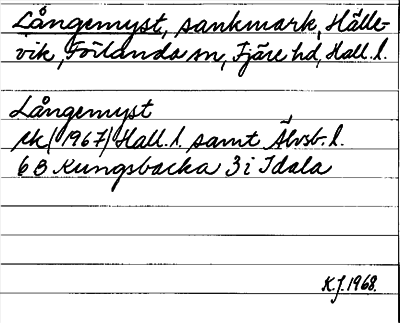 Långemyst, sankmark, Hälle-
vik, Förlanda sn, Fjäre hd, Hall. l.
Långemyst
Ek (1967) Hall. l. samt Älvsb. l.
6 B Kungsbacka 3 i Idala
K.J. 1968.